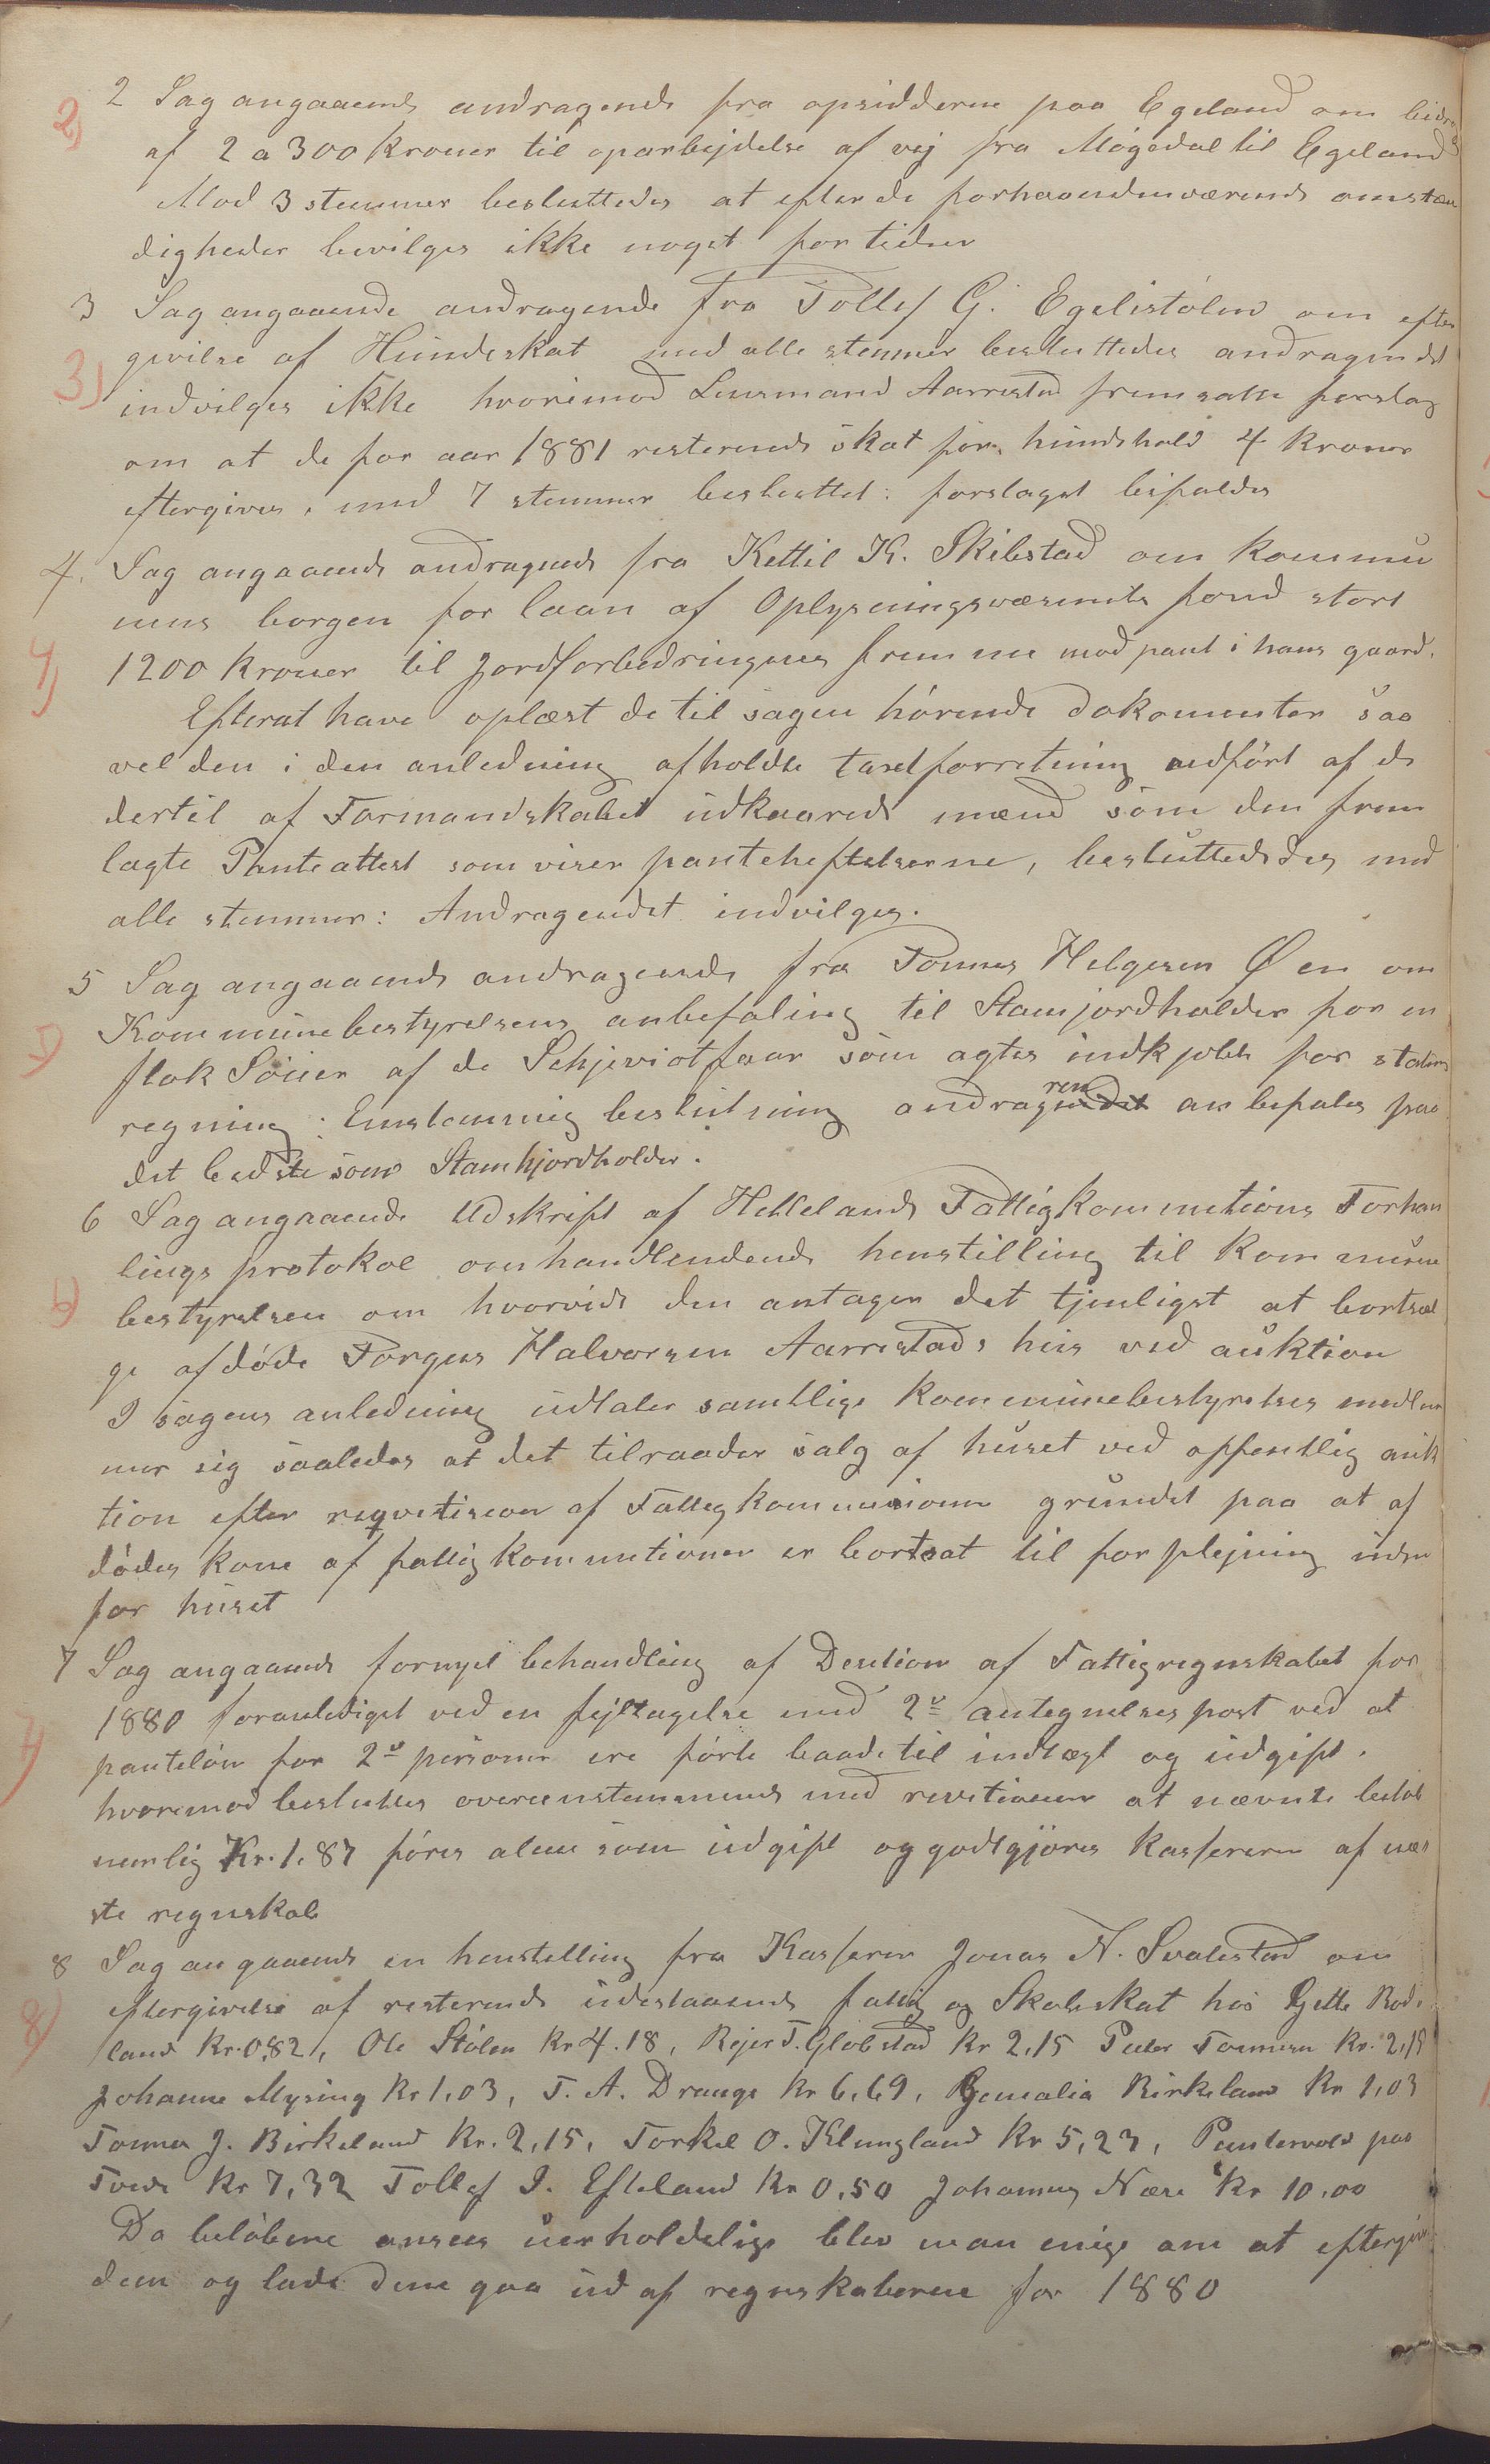 2 Sag angaaende andragende fra opsidderne paa Egeland om bidrag
2) af 2 a 300 kroner til oparbejdelse af vej fra Mögedal til Egeland
Mod 3 stemmer besluttedes at efter de forhaandenværende omstæn
digheder bevilges ikke noget for tiden
3 Sag angaaende andragende fra Tollef G. Egelistölen om efter
givilse af Hundeskat med alle stemmer besluttedes andragendet
3) indvilges ikke hvorimod Lensmand Aarrestad fremsatte forslag
om at de for aar 1881 resterende skat for hundehold 4 kroner
eftergives, med 7 stemmer besluttet: forslaget bifaldes
4. Sag angaaende andragende fra Kettil K. Skibstad om kommu
nens borgen for laan af Oplysningsvæsenets fond stort
4) 1200 kroner til Jordforbedringens fremme mod pant i hans gaard.
Efterat have oplæst de til sagen hörende dokomenter saa
vel den i den anledning afholdte taxtforretning udfört af de
dertil af Formandskabet udkaarede mænd som den frem
lagte Panteattest som viser panteheftelserne, besluttededes med
alle stemmer: Andragendet indvilges.
5 Sag angaaende andragende fra Tonnes Helgesen Øen om
5) Kommunebestyrelsens anbefaling til Stamjordholder for en
flok Söuer af de Schjeviotfaar som agtes indkjöbte for statens
regning: Enstemmig beslutning andragendet ren anbefales paa
det bedste som Stamhjordholder.
6 Sag angaaende Udskrift af Hellelands Fattigkommitions Forhan
lings protokol omhandlendende henstilling til kommune
6) bestyrelsen om hvorvidt den antager det tjenligst at bortsæl
ge afdöde Torgers Halvorsen Aarrestads hus ved auktion
I sagens anledning udtaler samtlige kommunebestyrelses medlem
mer sig saaledes at det tilraader salg af huset ved offentlig auk
tion efter reqvetision af Fattigkommisionen grundet paa at af
dödes kone af fattigkommitionen er bortsat til forplejning uden
for huset
7 Sag angaaende fornyet behandling af Desition af Fattigregnskabet for
1880 foranlediget ved en fejltagelse med 2de antegnelsespost ved at
7) panteløn for 2de personer ere förte baade til indtægt og udgift.
hvorimod besluttes overeenstemmende med revitionen at nævnte belöb
nemlig Kr. 1.87 föres alene som udgift og godtgjöres kassereren af næ
ste regnskab
8 Sag angaaende en henstilling fra Kasserer Jonas N. Svalestad om
8) eftergivelse af resterende udestaaende fattig og Skoleskat hos Gitle Rods
land Kr. 0,82, Ole Stölen Kr 4.18, Rejer T. Glöbstad Kr 2,15 Peder Tønnesen Kr. 2,15
Johanne Mysing Kr 1,03, T. A. Drange Kr 6,69, Gemalia Birkeland Kr 1,03
Tönnes J. Birkeland Kr. 2,15, Torkel O. Klungland Kr 5,23, Pundervold paa
Kr 7,32 Tollef I. Efteland Kr 0,50 Johannes Næse Kr 10,00
Da belöbene ansees uerholdelige blev man enige om at eftergive
dem og lade dem gaa ud af regnskaberne for 1880